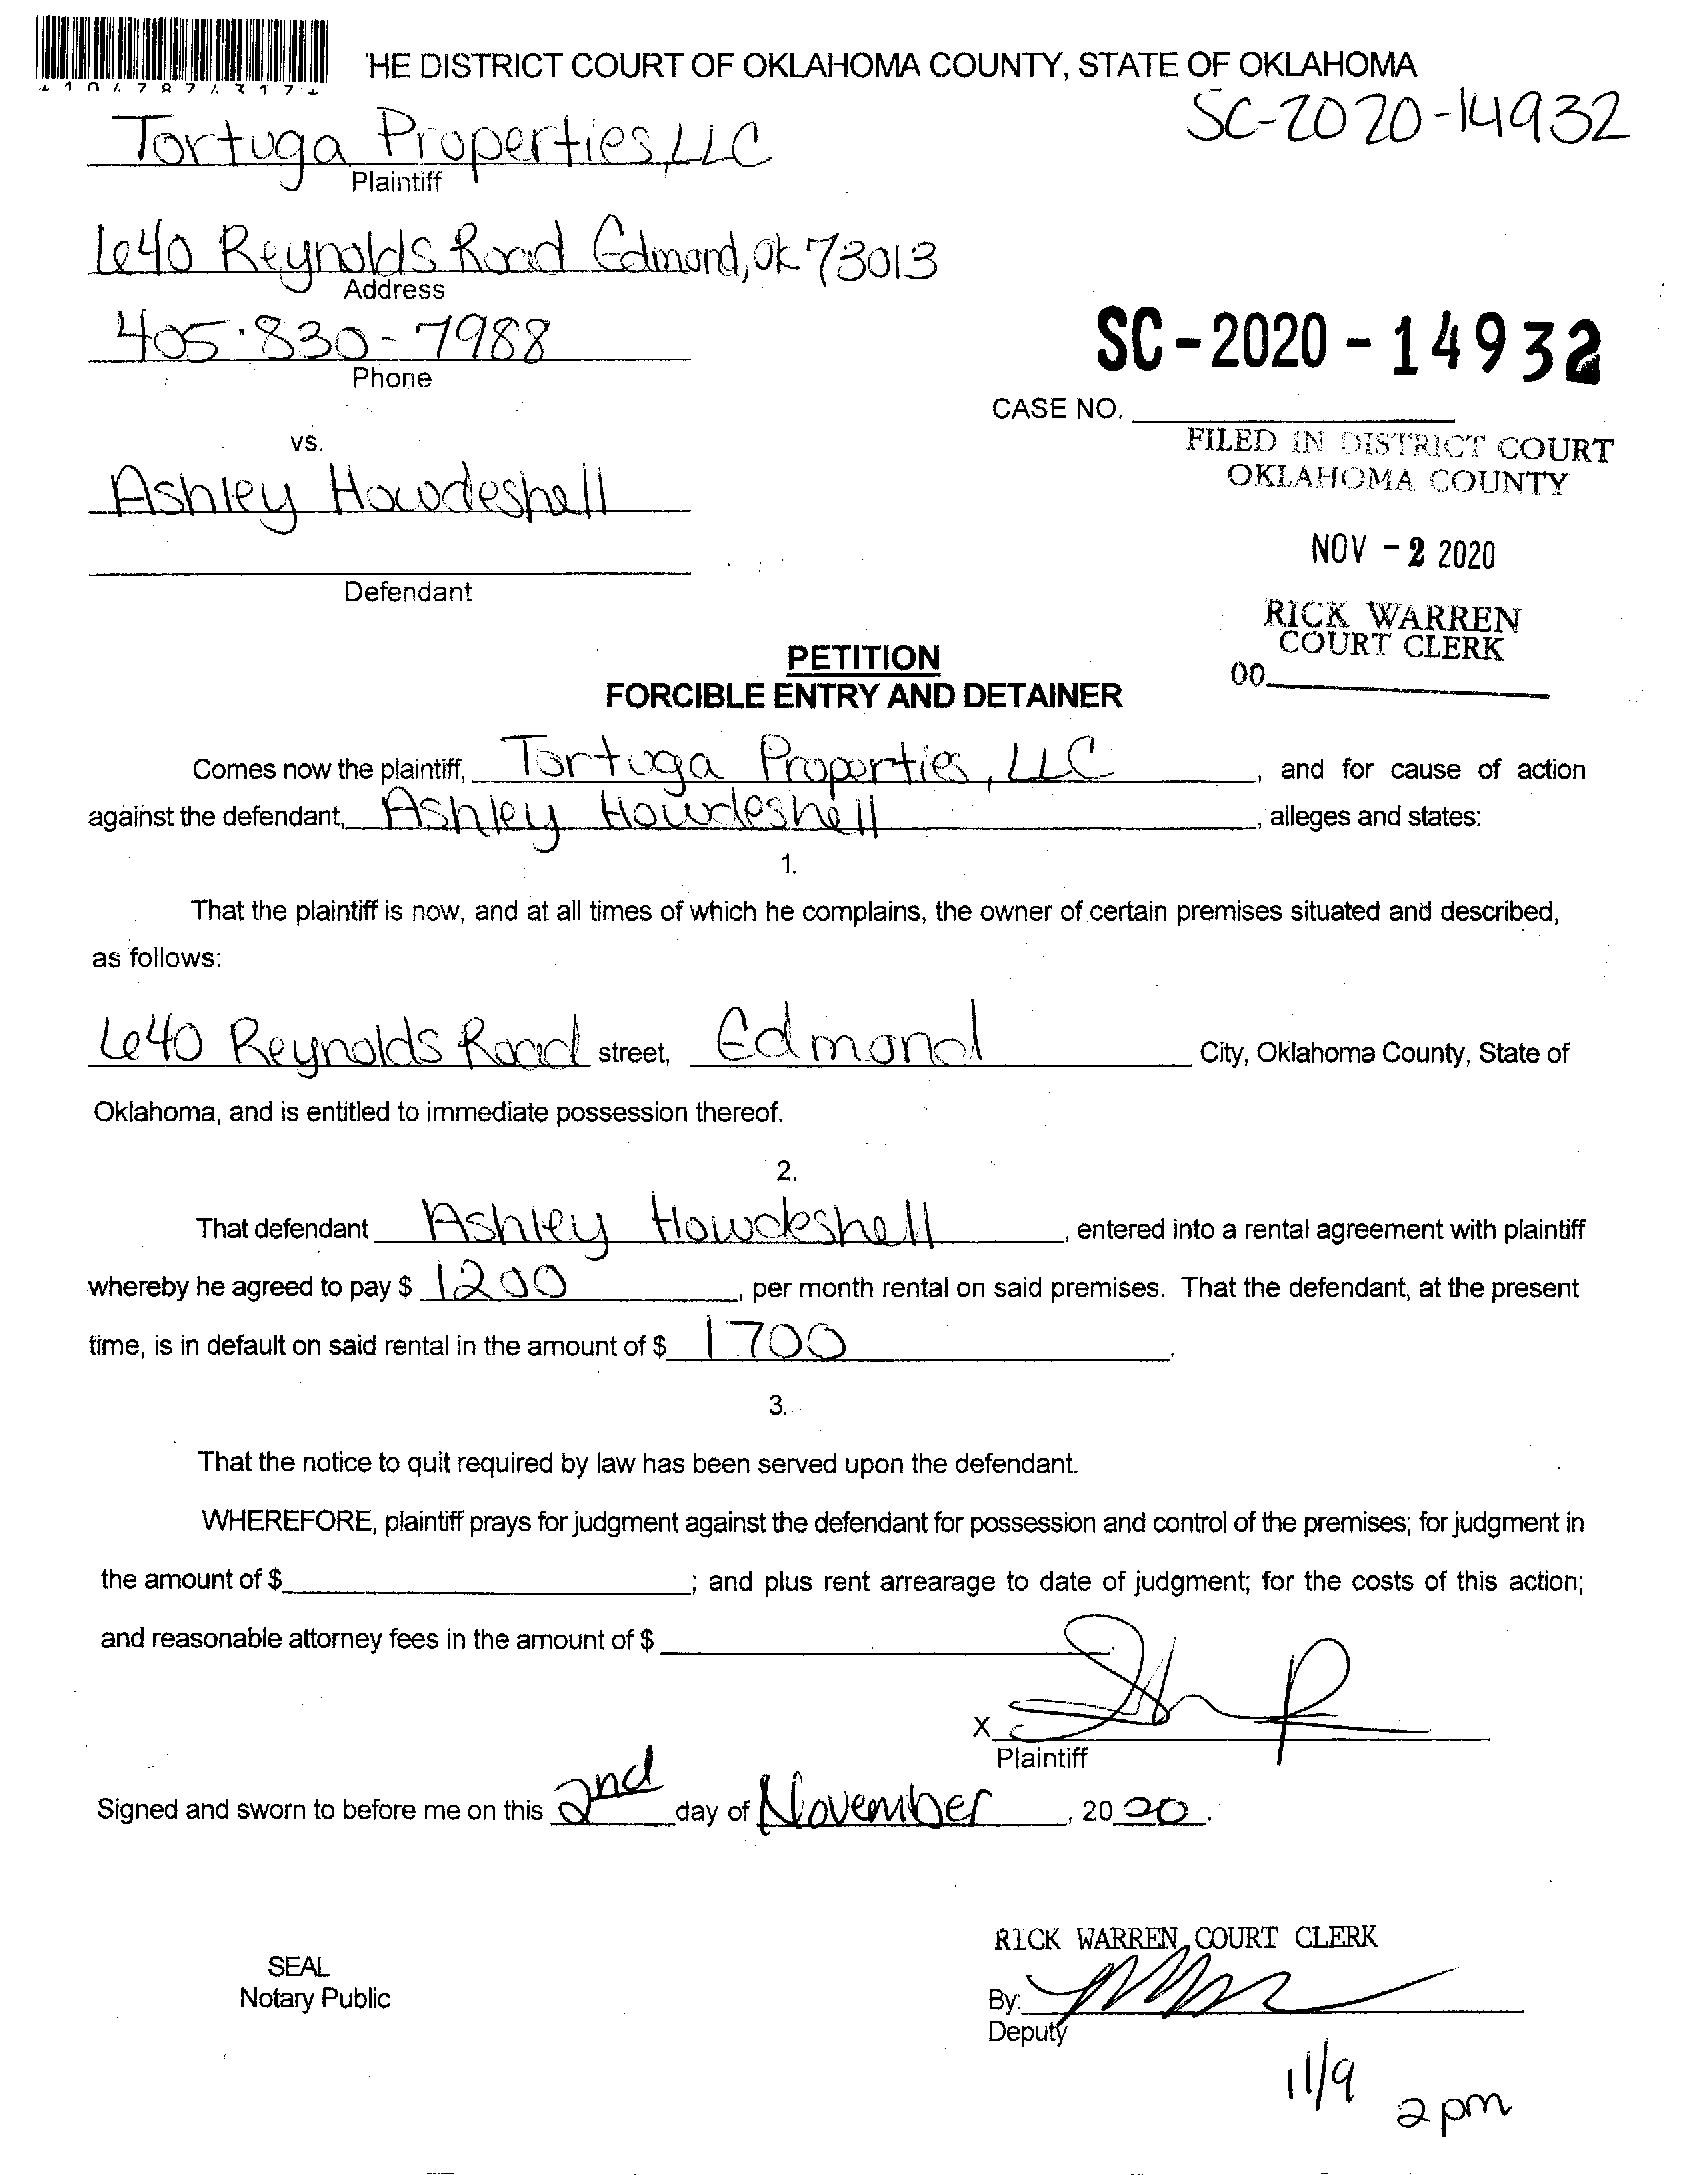 'HE DISTRICT COURT OF OKLAHOMA COUNTY, STATE OF OKLAHOMA
SC-2020-14932
Tortuga Properties, LLC
Plaintiff
640 Reynolds Road Edmond, Ok 73013
Address
405-830-7988
Phone
SC-2020-14932
CASE NO.
vs.
FILED IN DISTRICT COURT
OKLAHOMA COUNTY
Ashley Howdeshell
NOV - 2 2020
Defendant
RICK WARREN
COURT CLERK
00
PETITION
FORCIBLE ENTRY AND DETAINER
Comes now the plaintiff, Tortuga Properties, LLC, and for cause of action
against the defendant, Ashley Howdeshell, alleges and states:
1.
That the plaintiff is now, and at all times of which he complains, the owner of certain premises situated and described,
as follows:
640 Reynolds Road street, Edmond City, Oklahoma County, State of
Oklahoma, and is entitled to immediate possession thereof.
2.
That defendant Ashley Howdeshell, entered into a rental agreement with plaintiff
whereby he agreed to pay $ 1200, per month rental on said premises. That the defendant, at the present
time, is in default on said rental in the amount of $ 1700.
3.
That the notice to quit required by law has been served upon the defendant.
WHEREFORE, plaintiff prays for judgment against the defendant for possession and control of the premises; for judgment in
the amount of $ ; and plus rent arrearage to date of judgment; for the costs of this action;
and reasonable attorney fees in the amount of $
X
Plaintiff
Signed and sworn to before me on this 2nd day of November, 2020.
RICK WARREN, COURT CLERK
SEAL
Notary Public
By:
Deputy
11/9 2pm